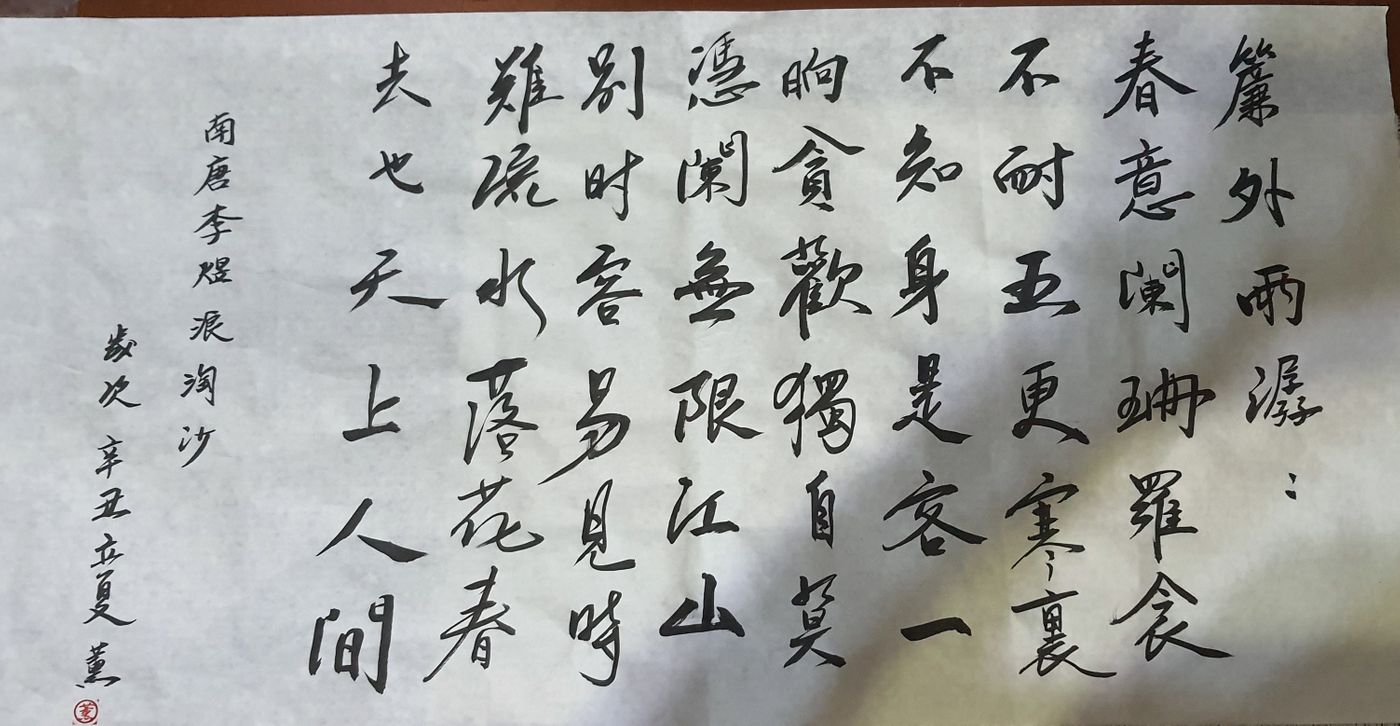 簾外雨潺：
春意闌珊羅衾
不耐五更寒裏
不知身是客一
晌貪歡獨自莫
憑闌無限江山
别时容易見時
難流水落花春
去也天上人間
南唐李煜浪淘沙
歲次辛丑立夏薰